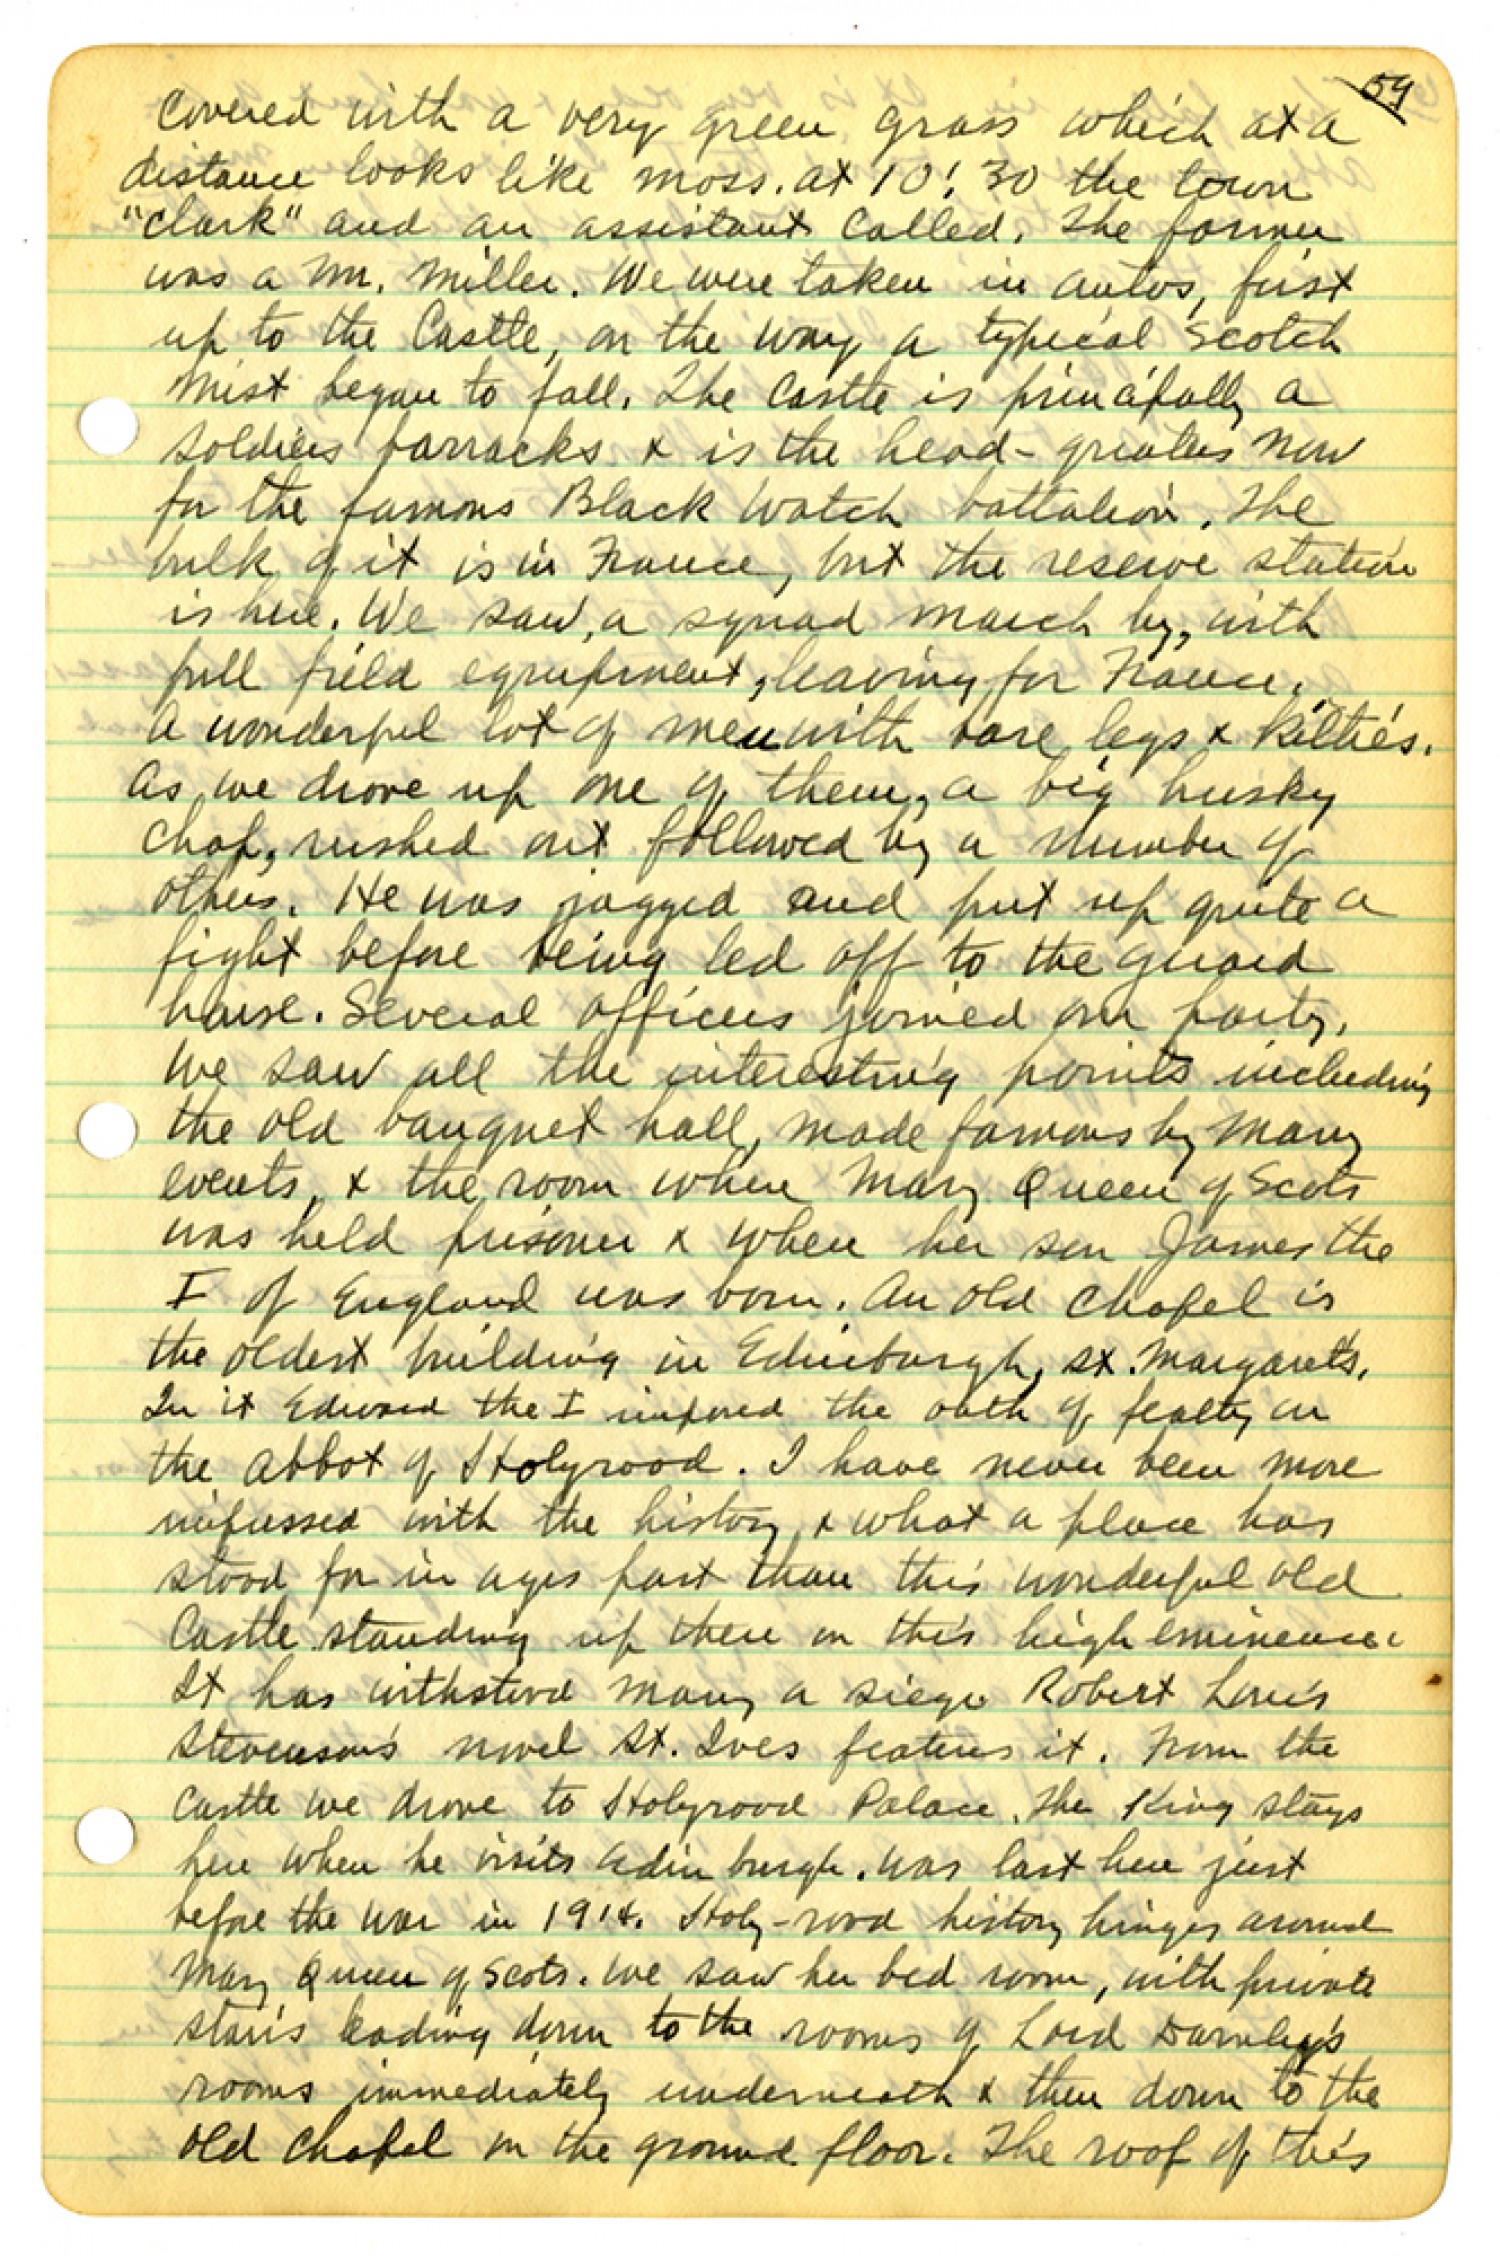 59
covered with a very green grass which at a
distance looks like moss. At 10:30 the town
"clark" and an assistant called. The former
was a Mr. Miller. We were taken in autos, first
up to the Castle, on the way a typical Scotch
mist began to fall. The Castle is principally a
soldiers barracks & is the head-quarters now
for the famous Black Watch battalion. The
bulk of it is in France, but the reserve station
is here. We saw a squad march by, with
full field equipment, leaving for France.
A wonderful lot of men with bare legs & kilties.
As we drove up one of them, a big husky
chap, rushed out followed by a number of
others. He was jagged and put up quite a
fight before being led off to the guard
house. Several officers joined our party.
We saw all the interesting points including
the old banquet hall, made famous by many
events, & the room where Mary Queen of Scots
was held prisoner & where her son James the
I of England was born. An old chapel is
the oldest building in Edinburgh, St. Margarets.
In it Edward the I imposed the oath of fealty on
the Abbot of Holyrood. I have never been more
impressed with the history & what a place has
stood for in ages past than this wonderful old
Castle standing up there on this high eminence.
It has withstood many a siege Robert Louis
Stevenson's novel St. Ives features it. From the
Castle we drove to Holyrood Palace. The King stays
here when he visits Edinburgh. Was last here just
before the war in 1914. Holy-rood history hinges around
Mary Queen of Scots. We saw her bed room, with private
stairs leading down to the rooms of Lord Darnley's
rooms immediately underneath & then down to the
old chapel on the ground floor. The roof of this